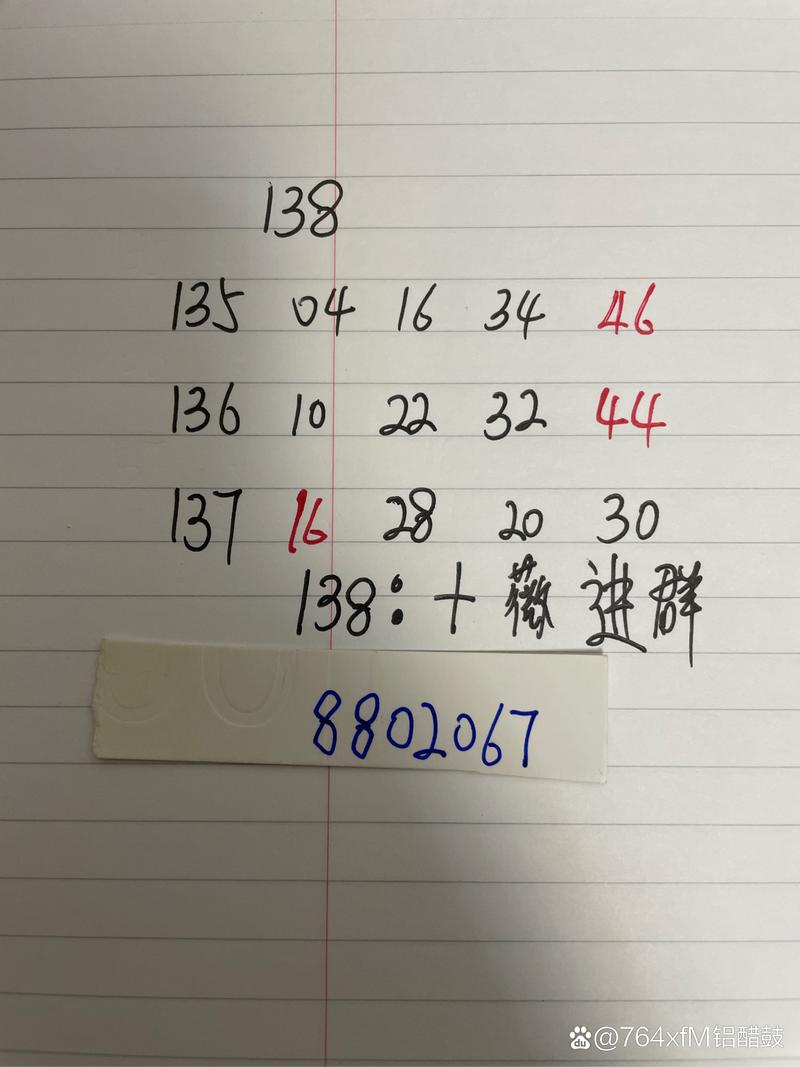 138
135 04 16 34 46
136 10 22 32 44
137 16 28 20 30
138:十薇进群
8802067
@764xfM铝醋鼓